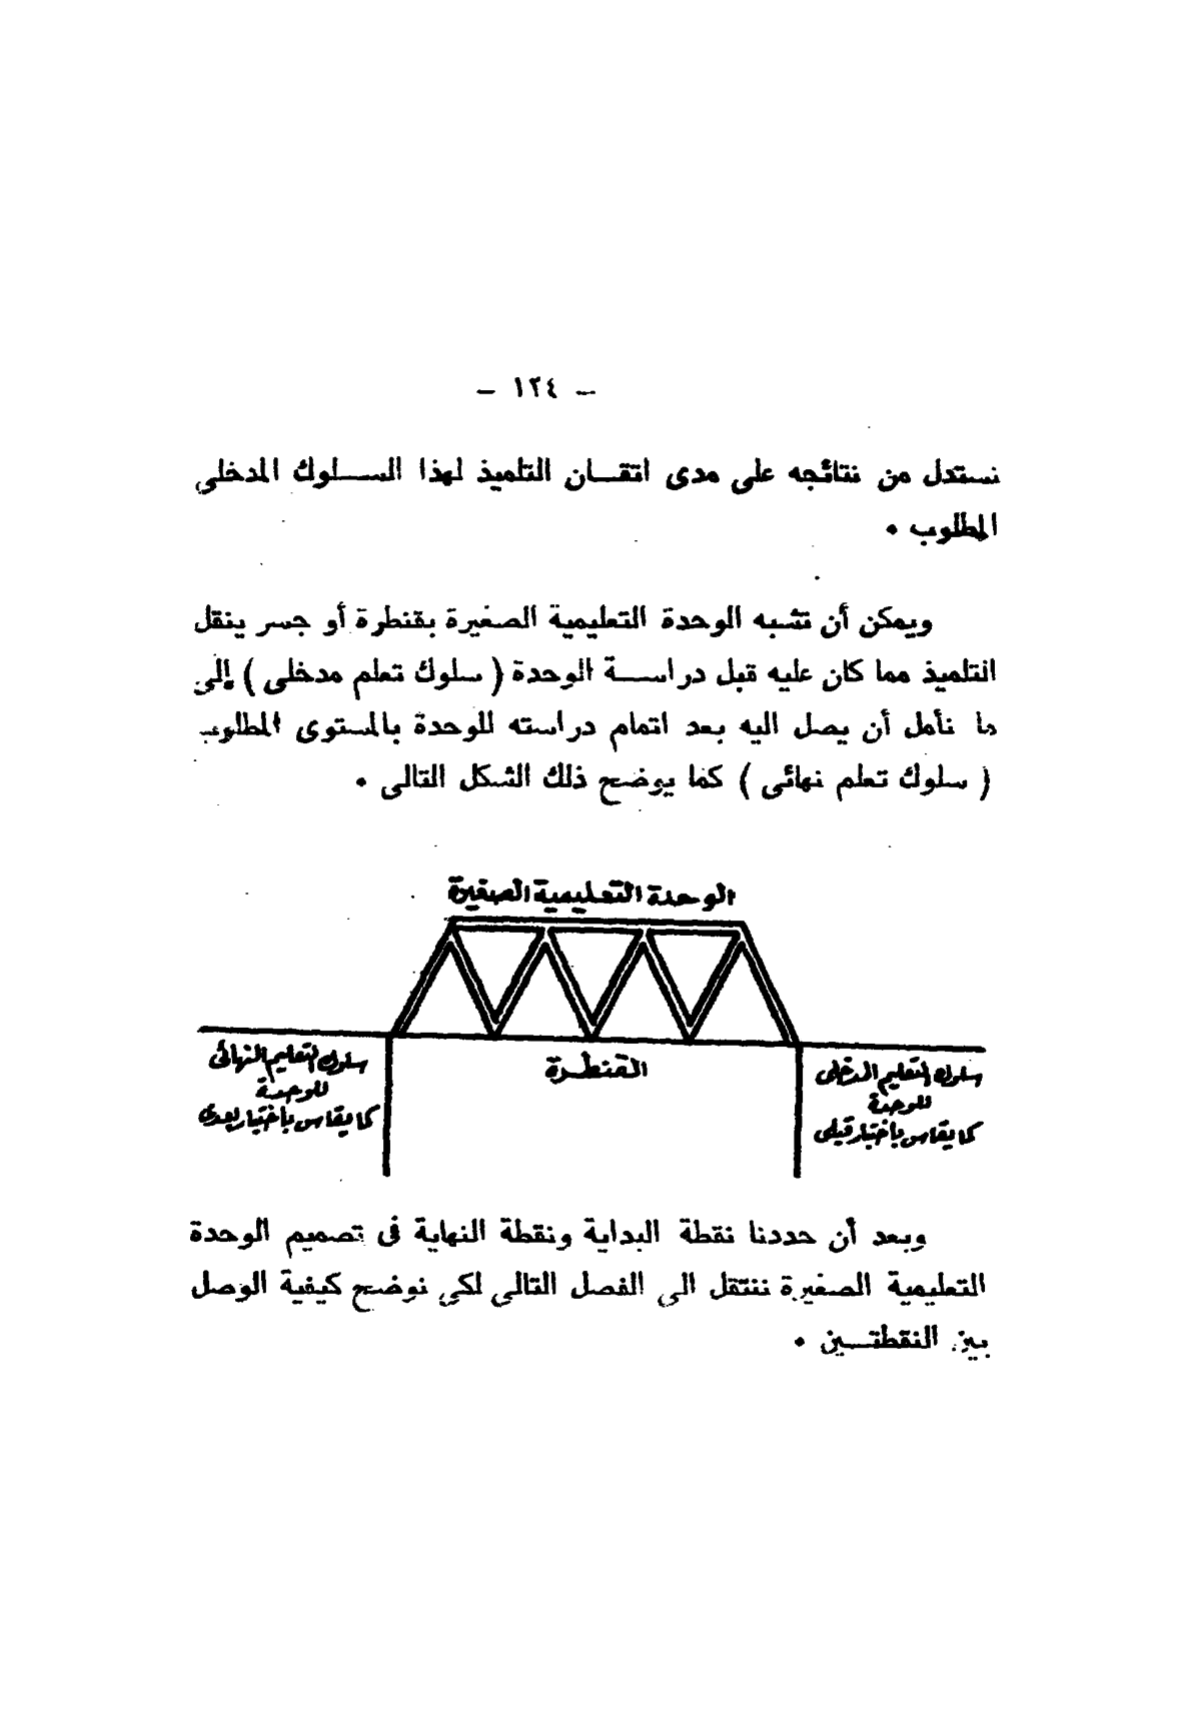 – ١٢٤ –
نستدل من نتائجه على مدى اتقـــان التلميذ لهذا الســـلوك المدخلى
المطلوب ٠
ويمكن أن تشبه الوحدة التعليمية الصغيرة بقنطرة أو جسر ينقل
التلميذ مما كان عليه قبل دراســـة الوحدة ( سلوك تعلم مدخلى ) إلى
ما نأمل أن يصل اليه بعد اتمام دراسته للوحدة بالمستوى المطلوب
( سلوك تعلم نهائى ) كما يوضح ذلك الشكل التالى ٠
الوحدة التعليمية الصغيرة
القنطرة
سلوك التعليم المدخلى
للوحدة
كما يقاس باختبار قبلى
سلوك التعليم النهائى
للوحدة
كما يقاس باختبار بعدى
وبعد أن حددنا نقطة البداية ونقطة النهاية فى تصميم الوحدة
التعليمية الصغيرة ننتقل الى الفصل التالى لكى نوضح كيفية الوصل
بين النقطتـــين ٠